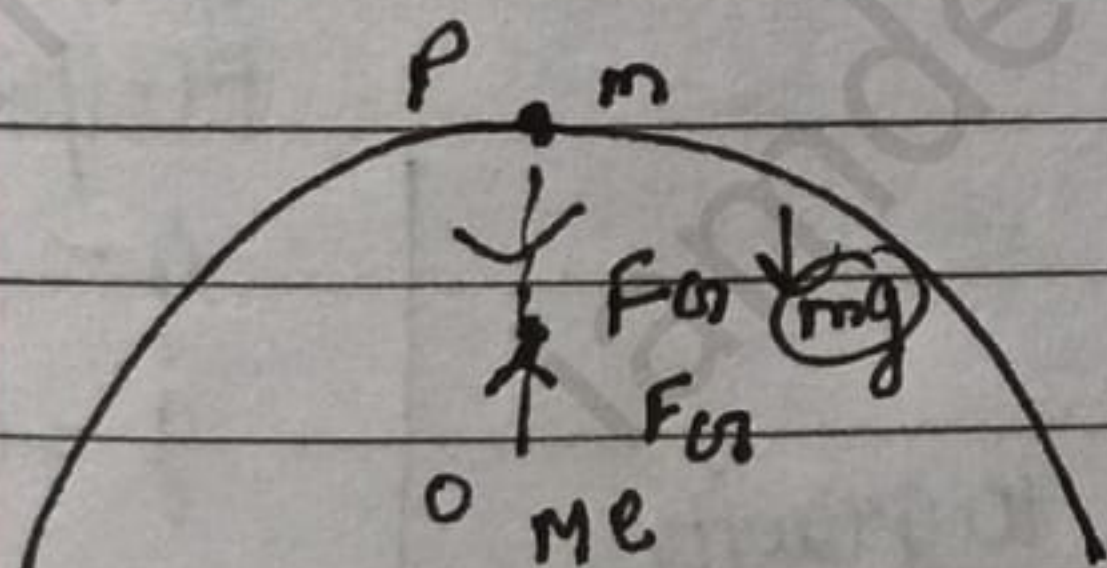 P m
FG mg
FG
O Me